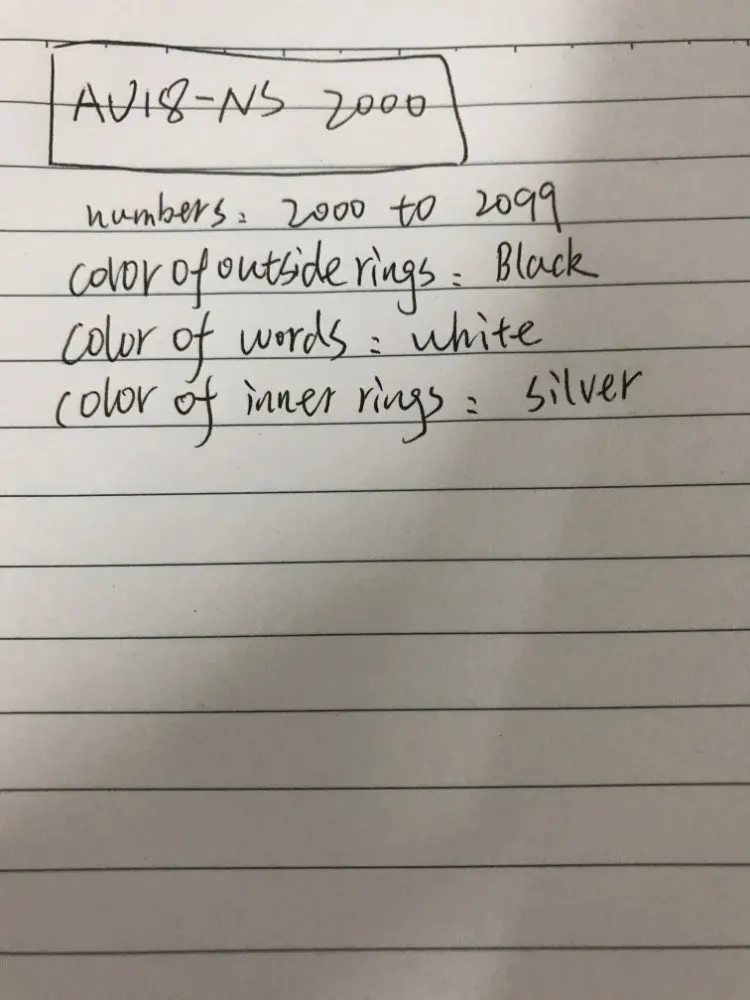 AU18-NS 2000
numbers: 2000 to 2099
color of outside rings: Black
color of words: white
color of inner rings: silver